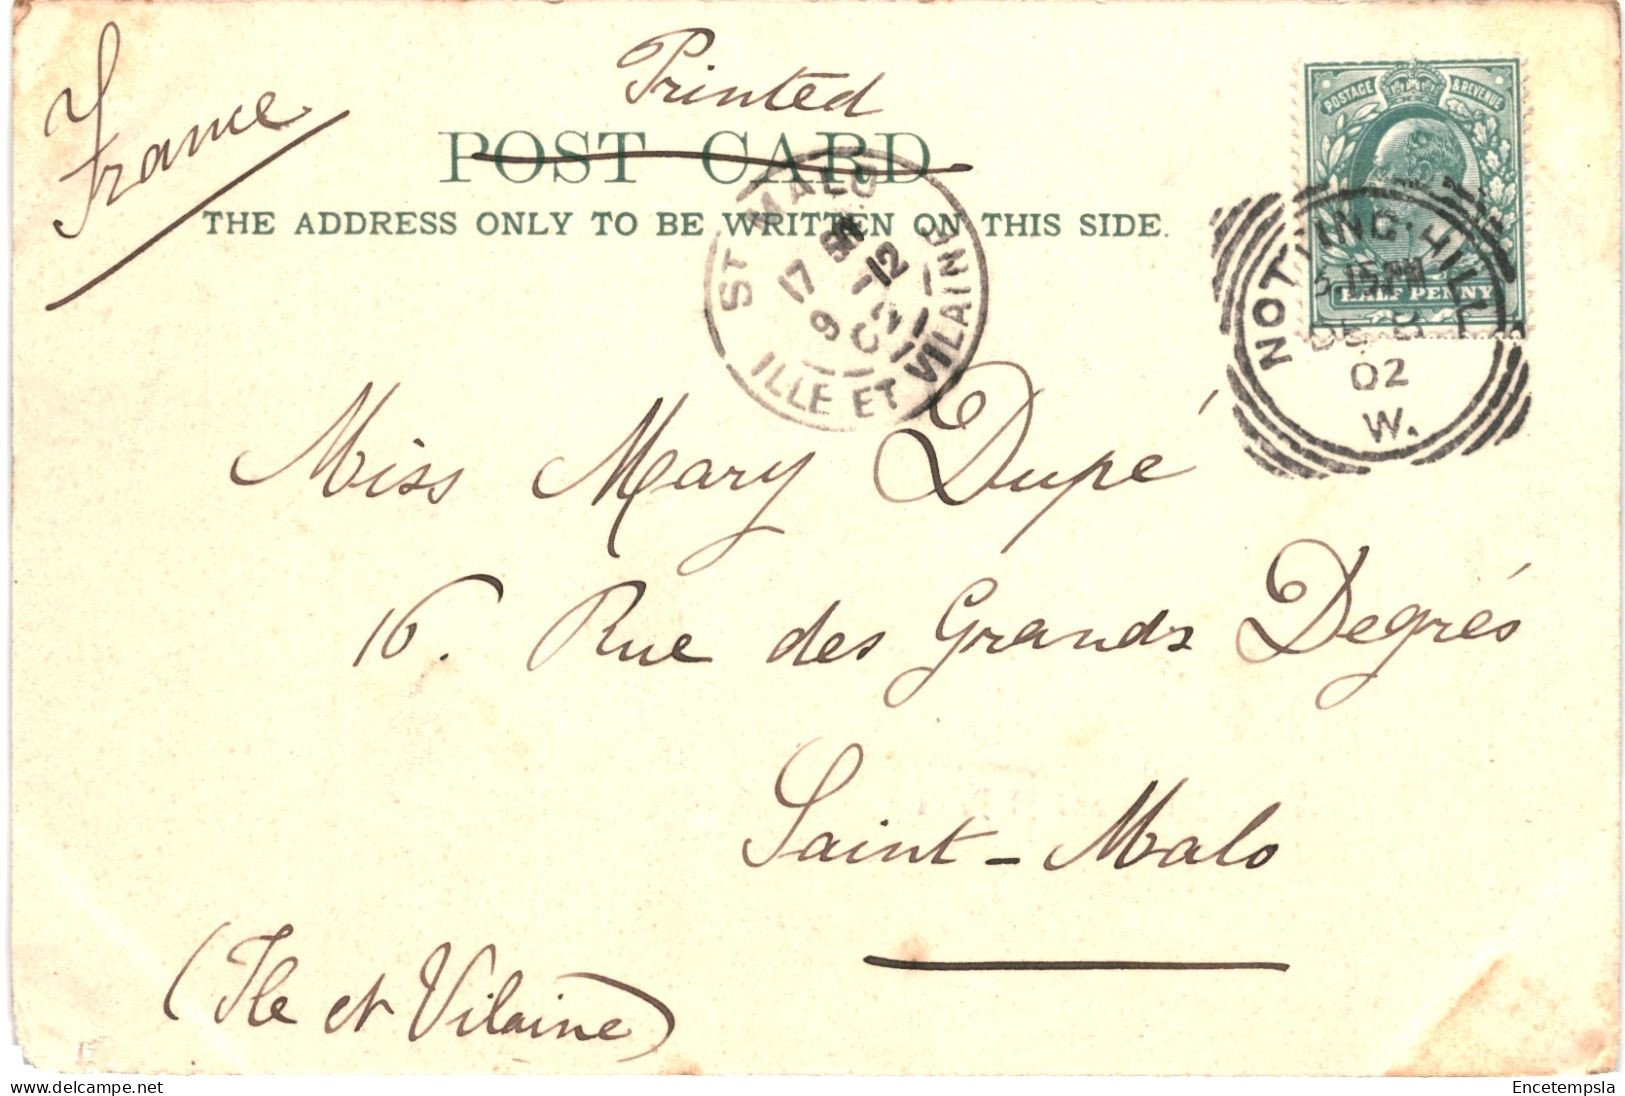 France
Printed
POST CARD
THE ADDRESS ONLY TO BE WRITTEN ON THIS SIDE.
POSTAGE & REVENUE
HALF PENNY
NOTTING·HILL
02
W.
ST MALO
ILLE ET VILAINE
Miss Mary Dupé
16. Rue des Grands Degrés
Saint-Malo
(Ile et Vilaine)
delcampe.net
Encetempsla